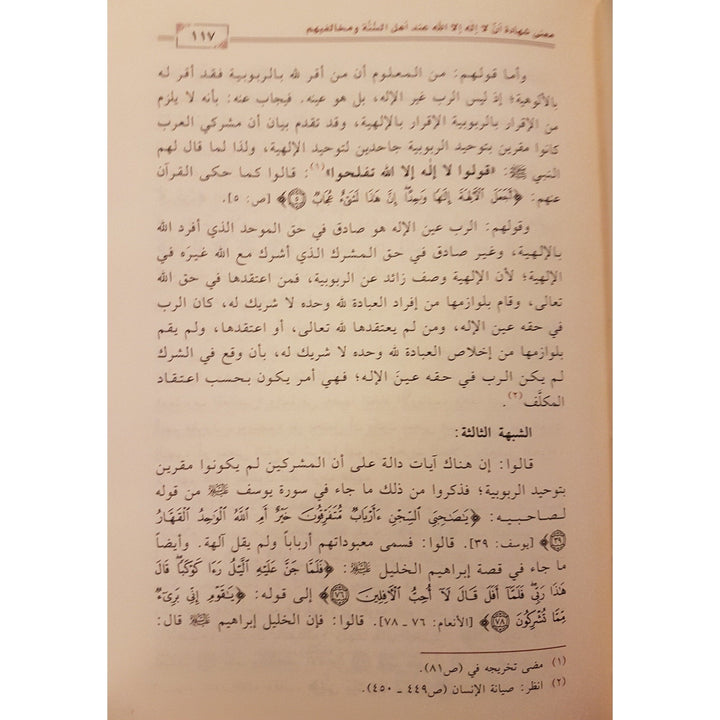 معنى شهادة أن لا إله إلا الله عند أهل السُّنَّة ومخالفيهم
١١٧
وأما قولهم: من المعلوم أن من أقر لله بالربوبية فقد أقر له
بالألوهية؛ إذ ليس الرب غير الإله، بل هو عينه. فيجاب عنه: بأنه لا يلزم
من الإقرار بالربوبية الإقرار بالإلهية، وقد تقدم بيان أن مشركي العرب
كانوا مقرين بتوحيد الربوبية جاحدين لتوحيد الإلهية، ولذا لما قال لهم
النبي ﷺ: «قولوا لا إله إلا الله تفلحوا»(١): قالوا كما حكى القرآن
عنهم: ﴿أَجَعَلَ الْآلِهَةَ إِلَهًا وَاحِدًا إِنَّ هَذَا لَشَيْءٌ عُجَابٌ ۝٥﴾ [ص: ٥].
وقولهم: الرب عين الإله هو صادق في حق الموحد الذي أفرد الله
بالإلهية، وغير صادق في حق المشرك الذي أشرك مع الله غيرَه في
الإلهية؛ لأن الإلهية وصف زائد عن الربوبية، فمن اعتقدها في حق الله
تعالى، وقام بلوازمها من إفراد العبادة لله وحده لا شريك له، كان الرب
في حقه عين الإله، ومن لم يعتقدها لله تعالى، أو اعتقدها، ولم يقم
بلوازمها من إخلاص العبادة لله وحده لا شريك له، بأن وقع في الشرك
لم يكن الرب في حقه عينَ الإله؛ فهي أمر يكون بحسب اعتقاد
المكلَّف(٢).
الشبهة الثالثة:
قالوا: إن هناك آيات دالة على أن المشركين لم يكونوا مقرين
بتوحيد الربوبية؛ فذكروا من ذلك ما جاء في سورة يوسف عليه السلام من قوله
لصاحبيه: ﴿يَا صَاحِبَيِ السِّجْنِ أَأَرْبَابٌ مُتَفَرِّقُونَ خَيْرٌ أَمِ اللَّهُ الْوَاحِدُ الْقَهَّارُ
۝٣٩﴾ [يوسف: ٣٩]. قالوا: فسمى معبوداتهم أرباباً ولم يقل آلهة. وأيضاً
ما جاء في قصة إبراهيم الخليل عليه السلام: ﴿فَلَمَّا جَنَّ عَلَيْهِ اللَّيْلُ رَأَى كَوْكَبًا قَالَ
هَذَا رَبِّي فَلَمَّا أَفَلَ قَالَ لَا أُحِبُّ الْآفِلِينَ ۝٧٦﴾ إلى قوله: ﴿يَا قَوْمِ إِنِّي بَرِيءٌ
مِمَّا تُشْرِكُونَ ۝٧٨﴾ [الأنعام: ٧٦ - ٧٨]. قالوا: فإن الخليل إبراهيم عليه السلام قال:
(١) مضى تخريجه في (ص٨١).
(٢) انظر: صيانة الإنسان (ص٤٤٩ - ٤٥٠).